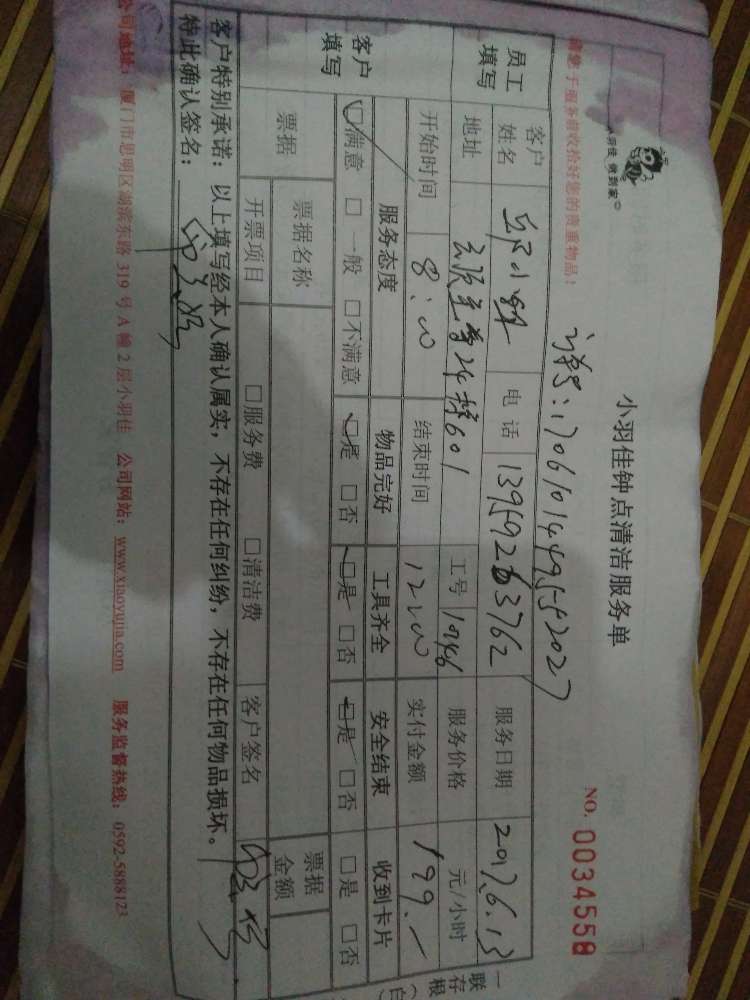 小羽佳 做到家
小羽佳钟点清洁服务单
NO. 0034558
请您于服务前收拾好您的贵重物品！
员工填写
客户姓名
小姐
电话
服务日期 2017.6.13
地址
24楼601
工号
服务价格
元/小时
开始时间 8:00
结束时间 12:00
实付金额 199.-
客户填写
服务态度 物品完好 工具齐全 安全结束 收到卡片
☑满意 □一般 □不满意 ☑是 □否 ☑是 □否 ☑是 □否 □是 □否
票据
票据名称
票据金额
开票项目 □服务费 □清洁费 客户签名
客户特别承诺：以上填写经本人确认属实，不存在任何纠纷，不存在任何物品损坏。
特此确认签名：
公司地址：厦门市思明区湖滨东路 319 号 A 幢 2 层小羽佳 公司网站：www.xiaoyujia.com 服务监督热线：0592-5888123
一联存根